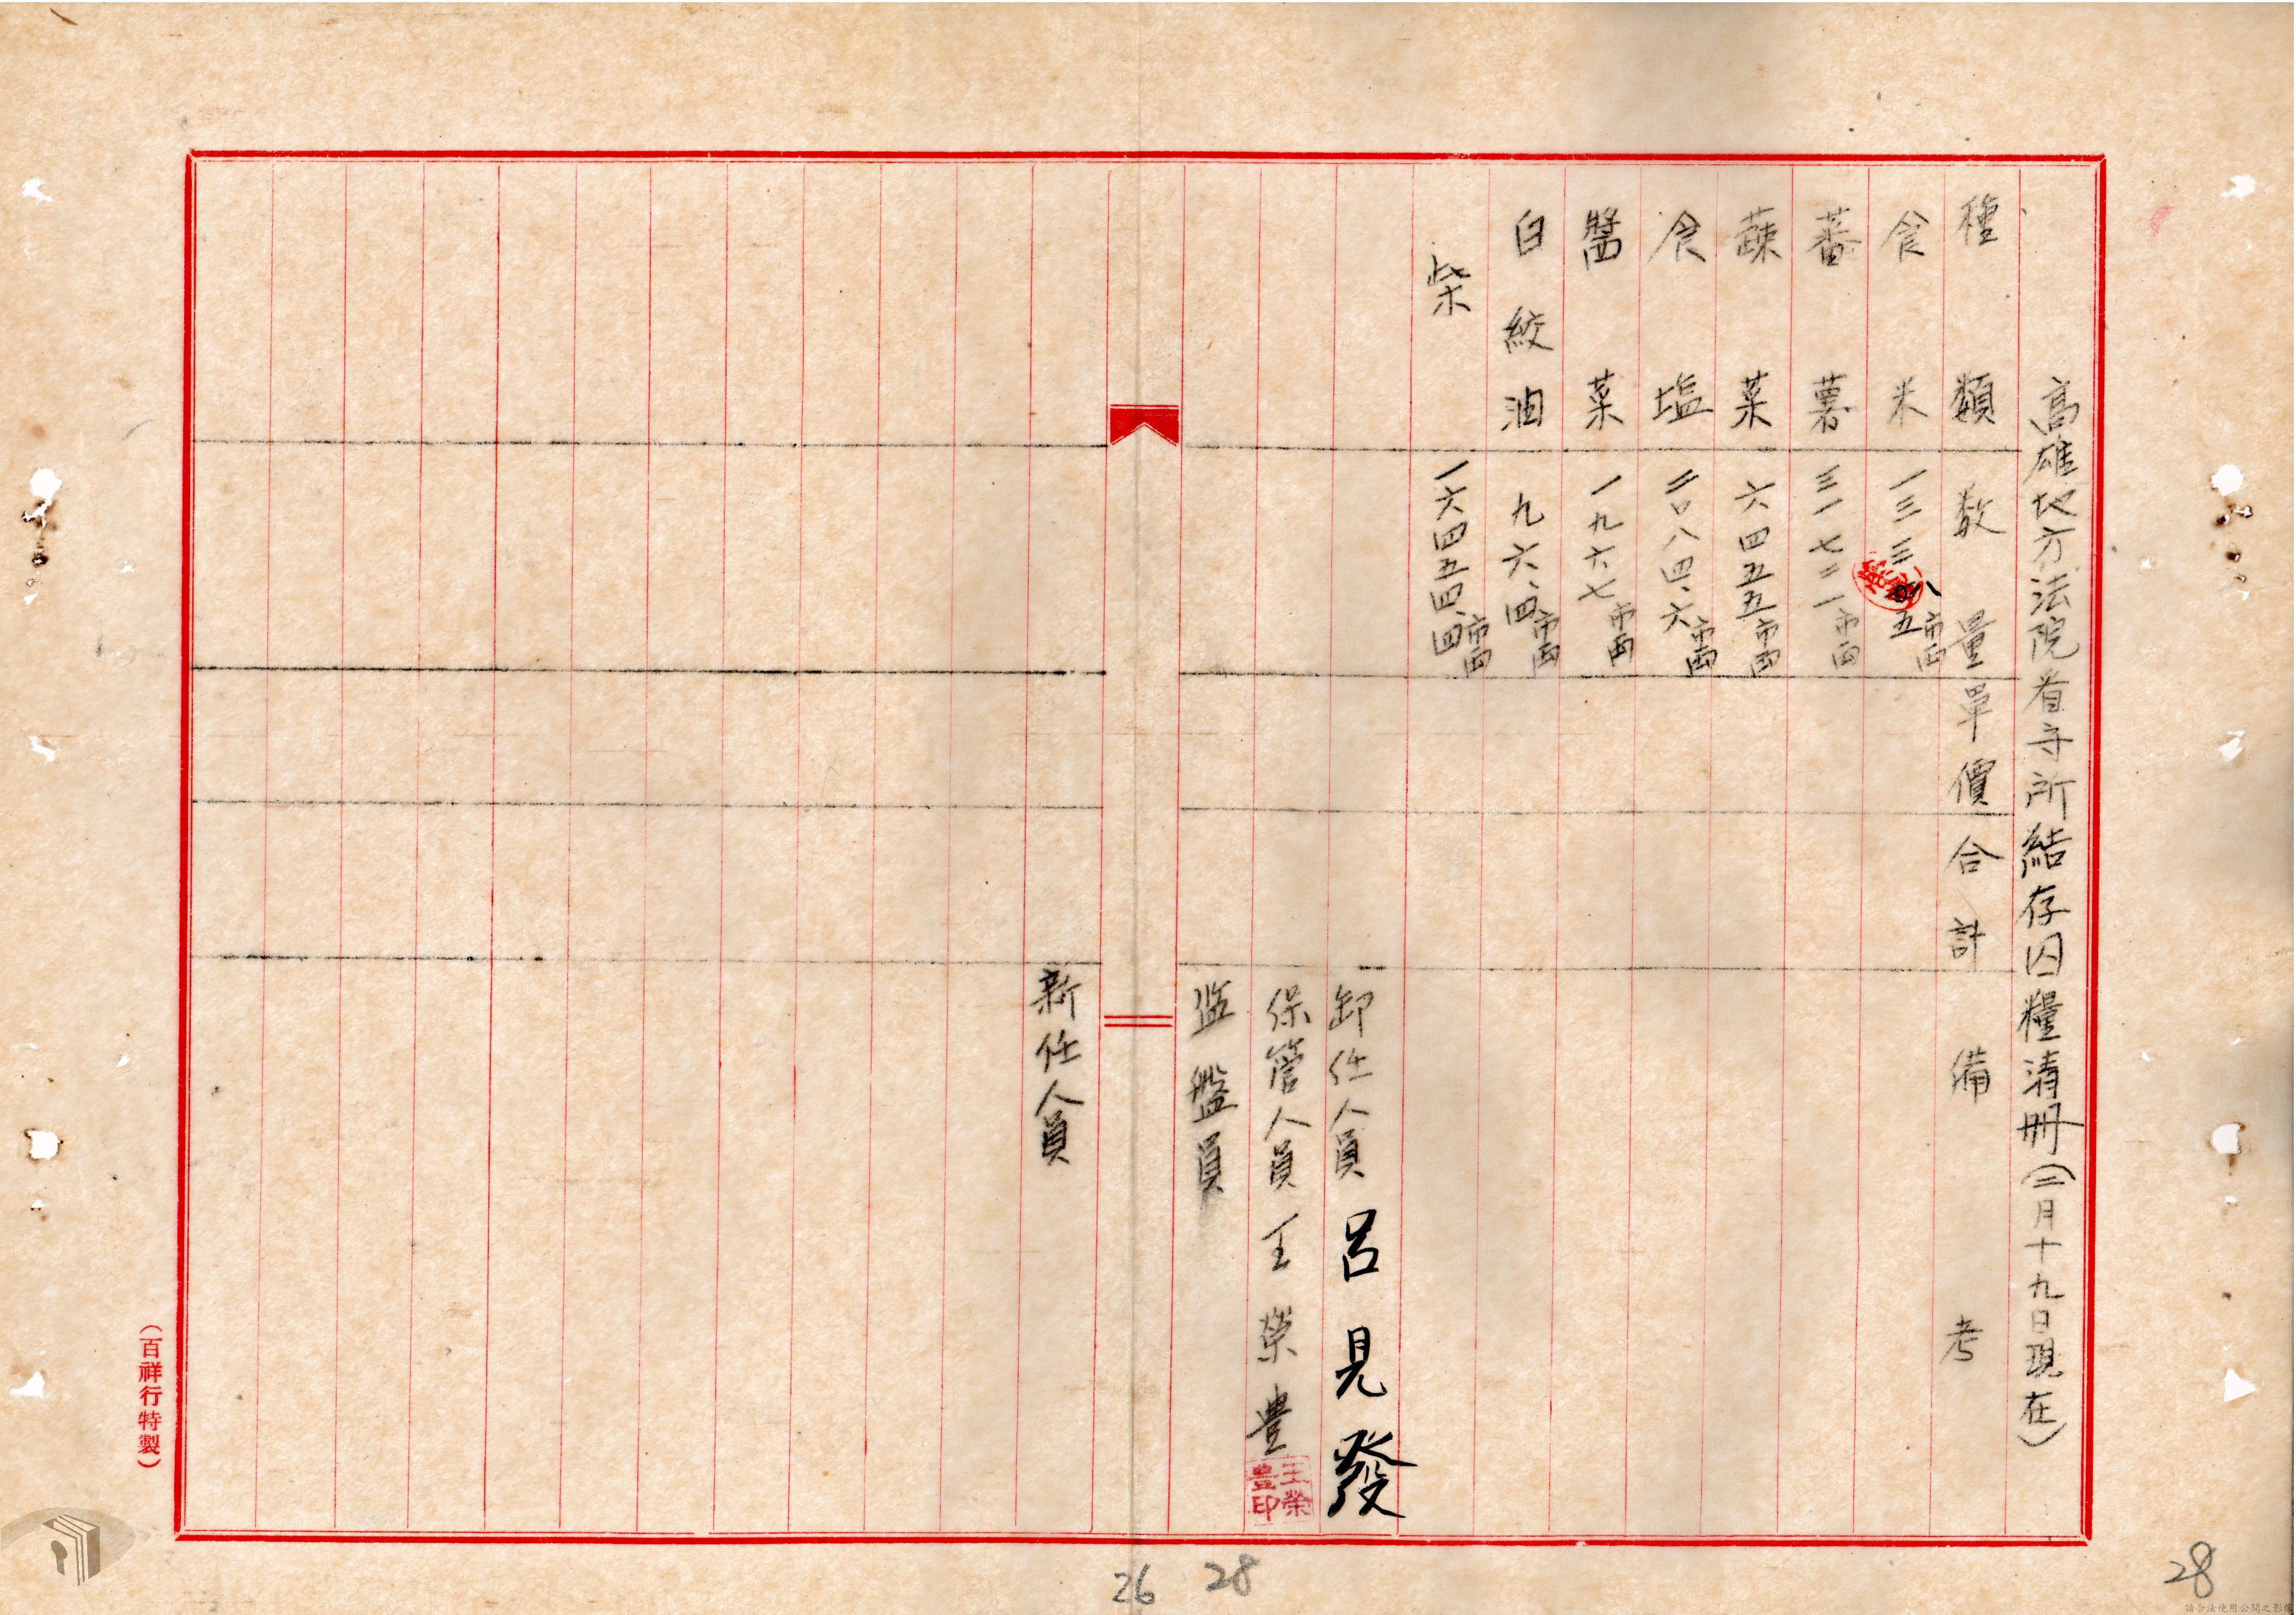 高雄地方法院看守所結存囚糧清冊(二月十九日現在)
種類 數量 單價 合計 備考
食米 一三三八五市両
蕃薯 三一七二一市両
蔬菜 六四五五市両
食塩 三〇八四、六市両
醬菜 一九六七市両
白絞油 九六、四市両
柴 一六四五四、四市両
卸任人員 呂見發
保管人員 王榮豊
王榮豊印
監盤員
新任人員
(百祥行特製)
26
28
28
請合法使用公開之影像